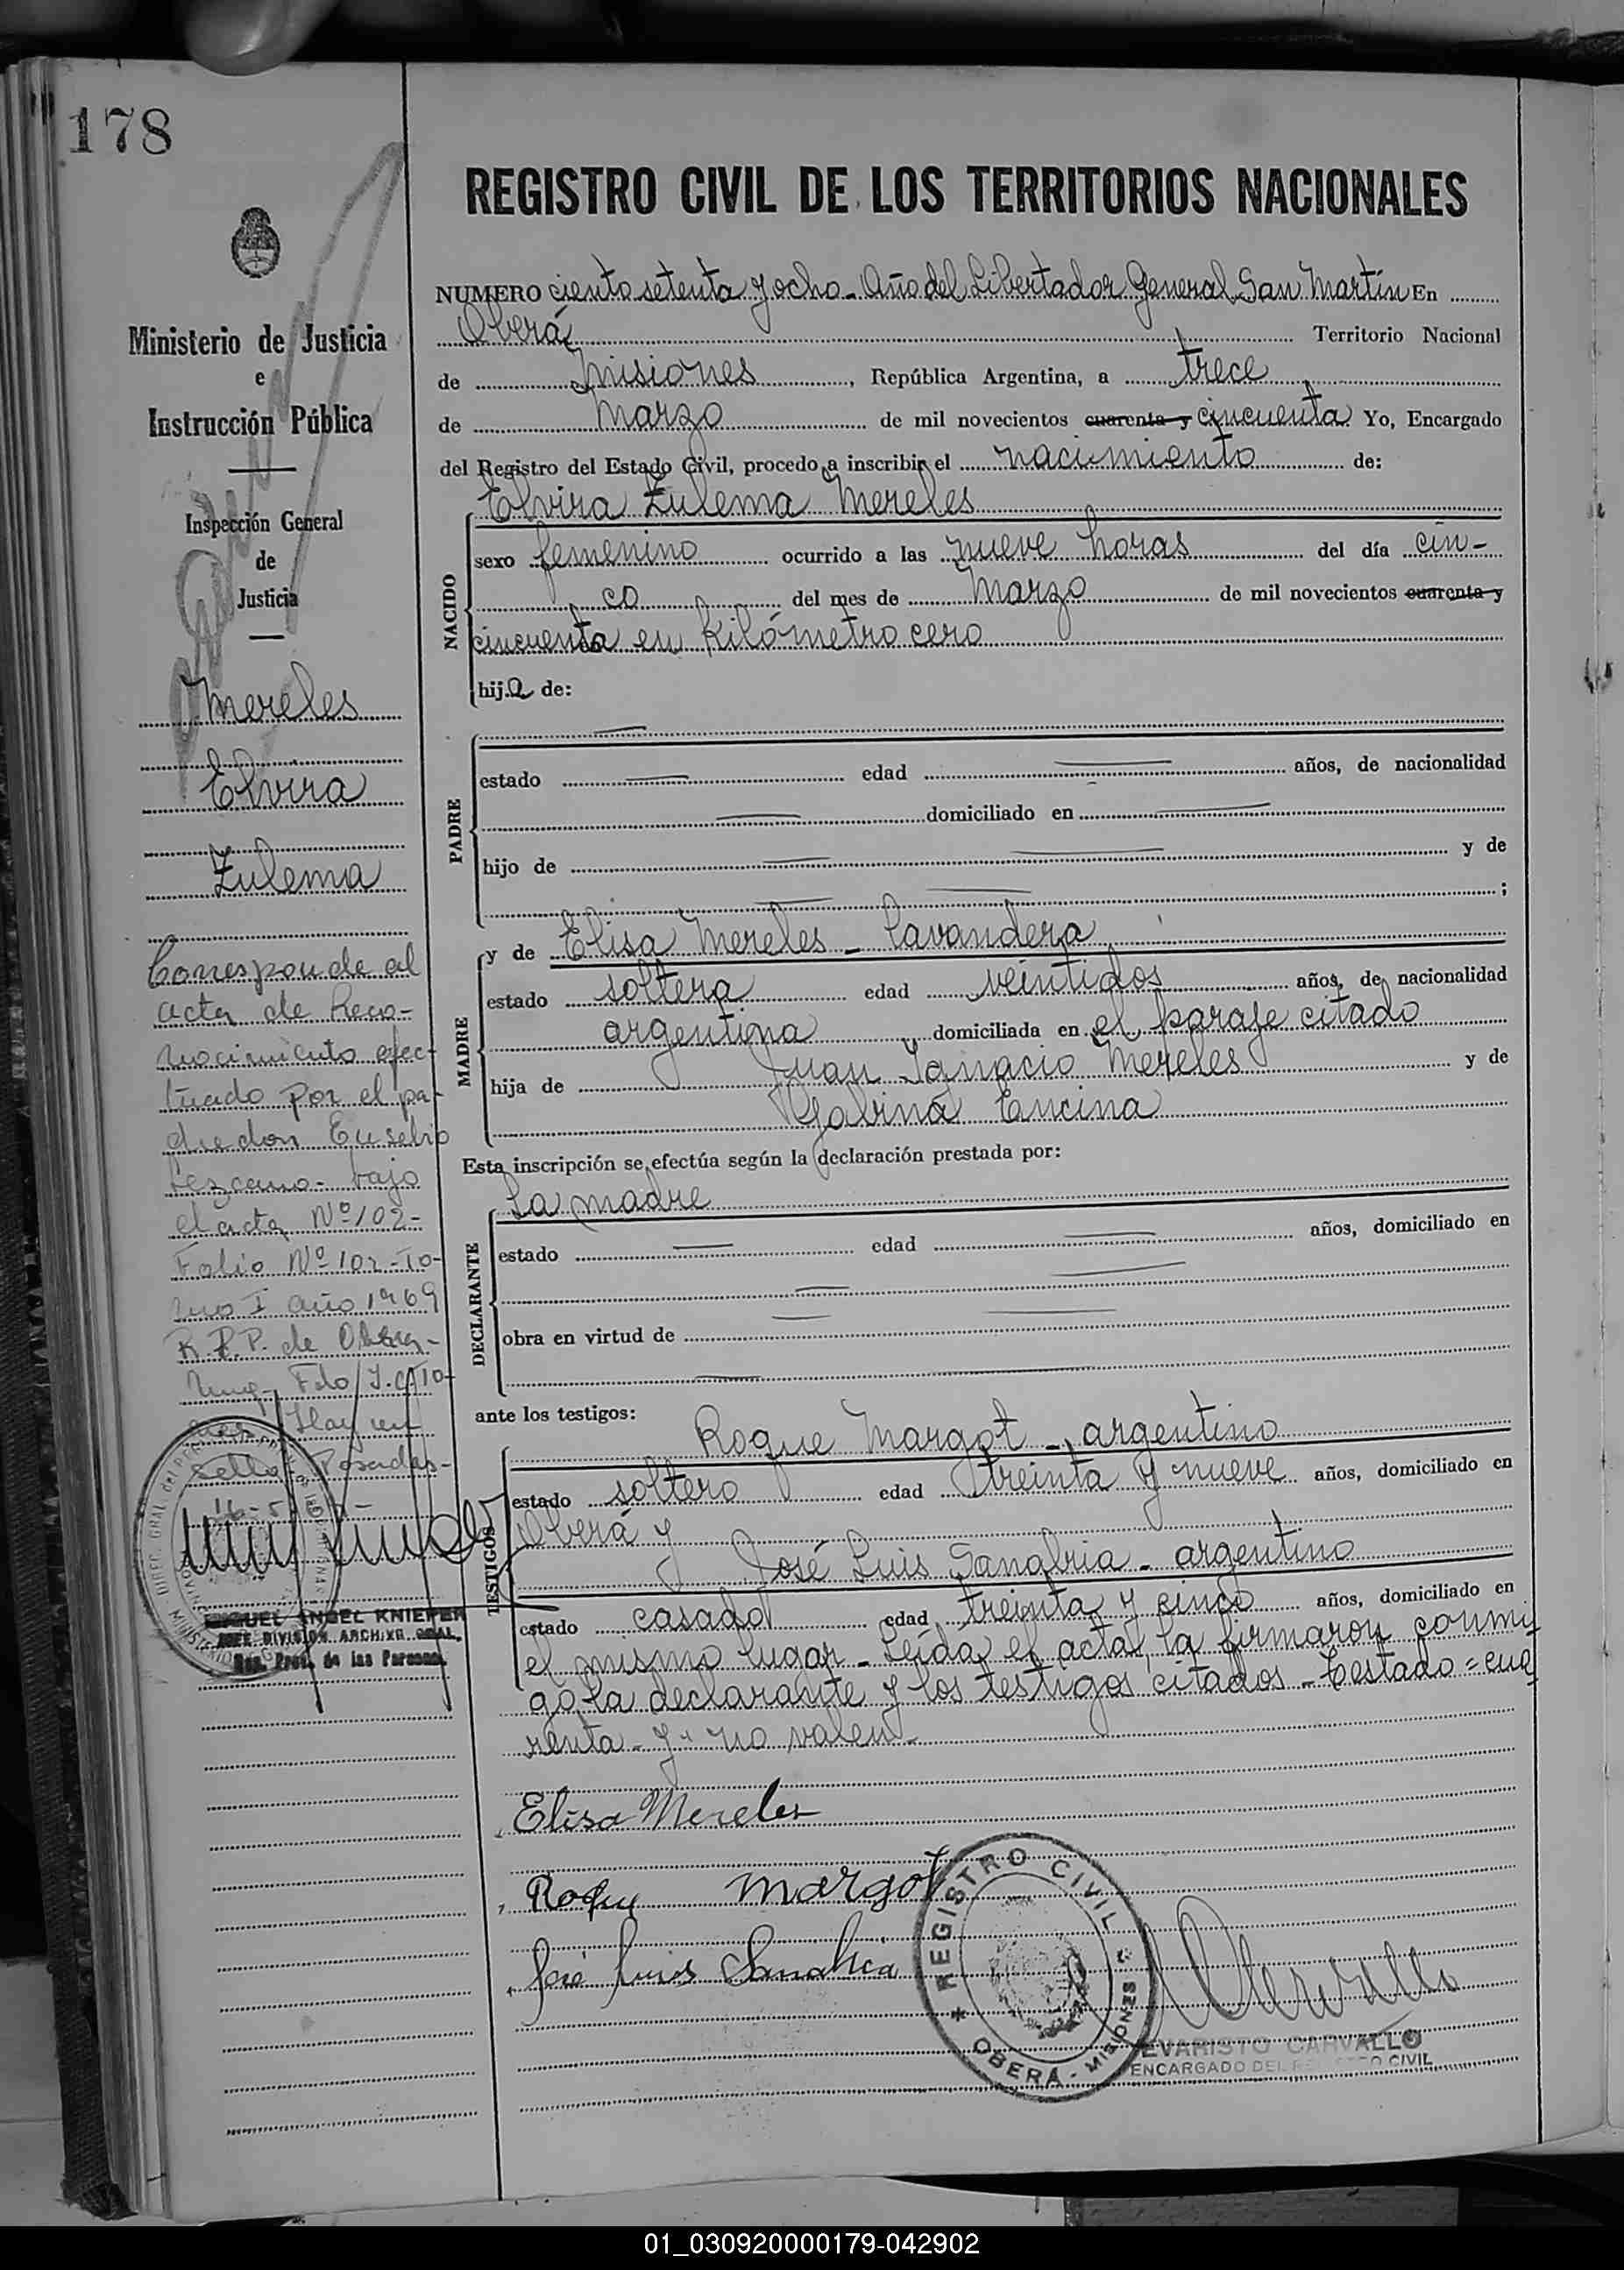 178
REGISTRO CIVIL DE LOS TERRITORIOS NACIONALES
NUMERO ciento setenta y ocho - Año del Libertador General San Martín En
Oberá Territorio Nacional
de Misiones, República Argentina, a trece
de Marzo de mil novecientos cuarenta y cincuenta Yo, Encargado
del Registro del Estado Civil, procedo a inscribir el nacimiento de:
NACIDO
Elvira Zulema Mereles
sexo femenino ocurrido a las nueve horas del día cin-
co del mes de Marzo de mil novecientos cuarenta y
cincuenta en Kilómetro cero
hija de:
PADRE
estado edad años, de nacionalidad
domiciliado en
hijo de y de
;
MADRE
y de Elisa Mereles - Lavandera
estado soltera edad veintidos años, de nacionalidad
argentina domiciliada en el paraje citado
hija de Juan Ignacio Mereles y de
Gabina Encina
Esta inscripción se efectúa según la declaración prestada por:
DECLARANTE
La madre
estado edad años, domiciliado en
obra en virtud de
ante los testigos:
TESTIGOS
Roque Margot - argentino
estado soltero edad treinta y nueve años, domiciliado en
Oberá y
José Luis Sanabria - argentino
estado casado edad treinta y cinco años, domiciliado en
el mismo lugar - Leída el acta, la firmaron conmi
go la declarante y los testigos citados - testado = cua
renta - y " no valen -
Elisa Mereles
Roque Margot
José Luis Sanabria
REGISTRO CIVIL
OBERÁ - MISIONES
EVARISTO CARVALLO
ENCARGADO DEL REGISTRO CIVIL
Ministerio de Justicia
e
Instrucción Pública
Inspección General
de
Justicia
Mereles
Elvira
Zulema
Corresponde al
acta de Reco-
nocimiento efec-
tuado por el pa-
dre don Eusebio
Lezcano - bajo
el acta Nº 102-
Folio Nº 102 - To-
mo I año 1969
R.P.P. de Oberá -
Fdo J.C. To-
Hay un
sello - Posadas -
MIGUEL ANGEL KNIEPER
JEFE DIVISION ARCHIVO GRAL.
Reg. Prov. de las Personas
01_030920000179-042902